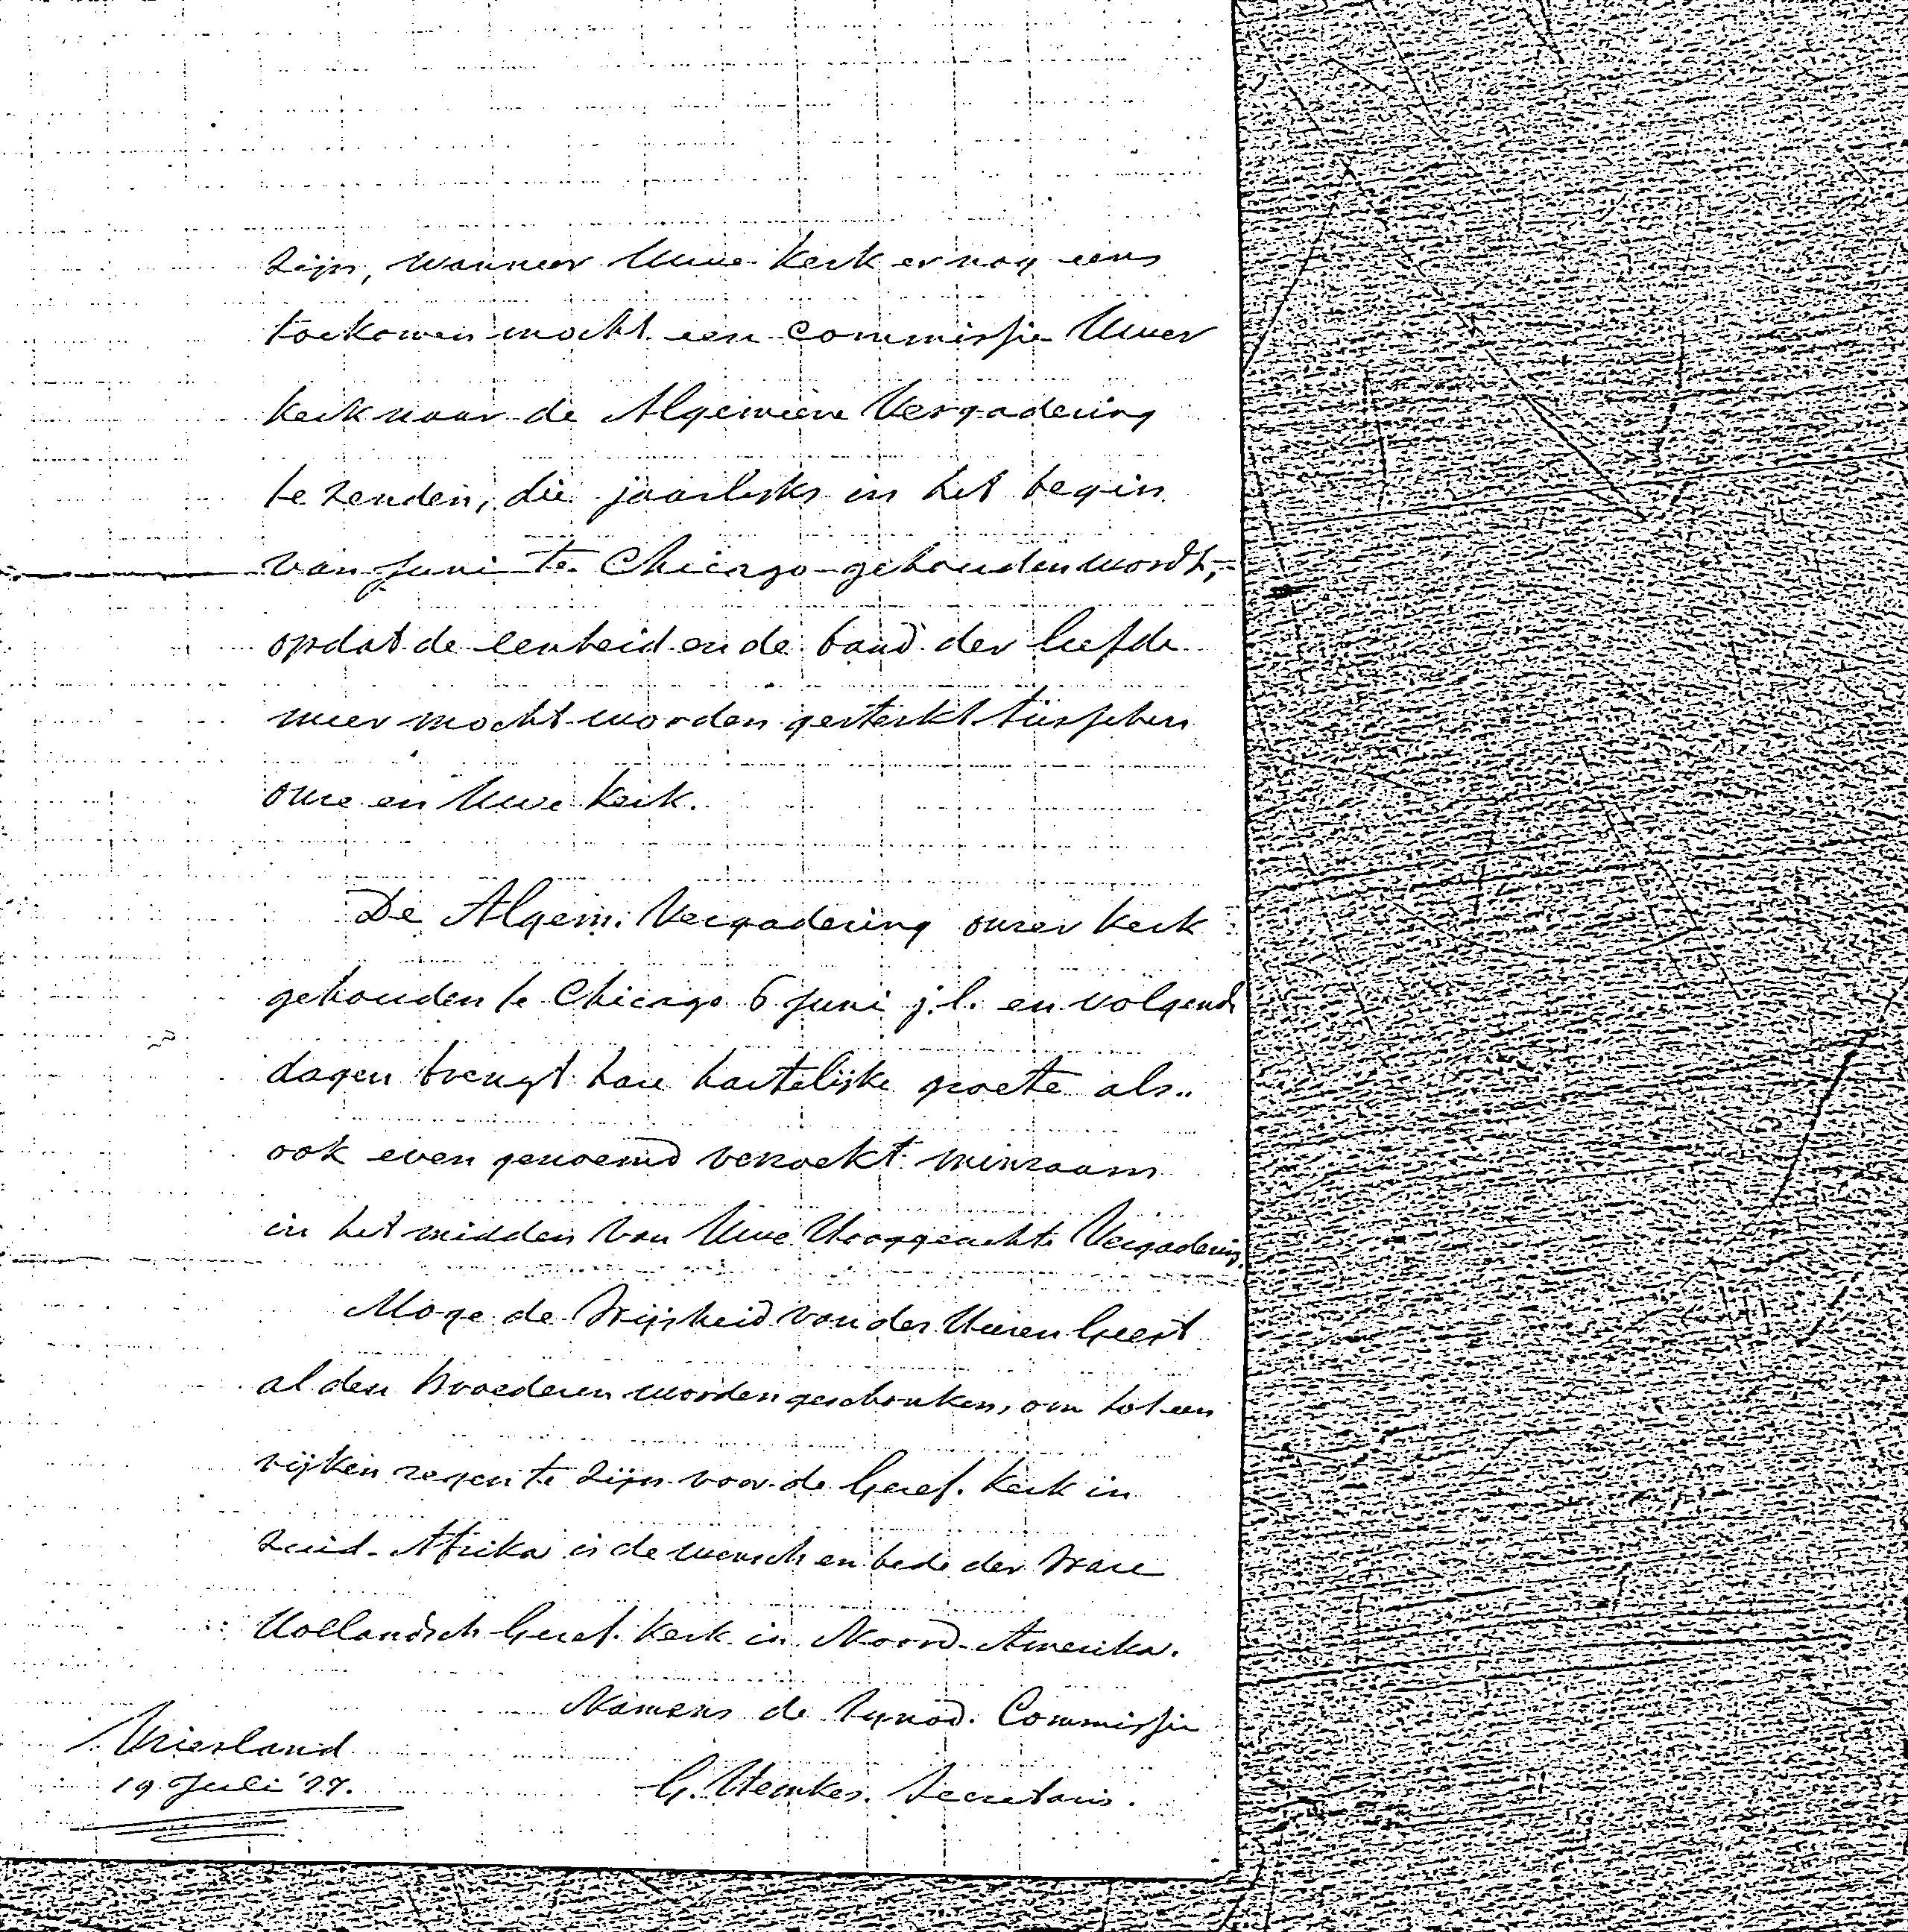 zijn, wanneer Uwe Kerk er nog eens
toekomen mocht een commissie Uwer
Kerk naar de Algemeene Vergadering
te zenden, die jaarlijks in het begin
van Juni te Chicago gehouden wordt,
opdat de eenheid en de band der liefde
meer mocht worden gesterkt tusschen
onze en Uwe Kerk.
De Algem. Vergadering onzer Kerk
gehouden te Chicago 6 Juni j.l. en volgende
dagen brengt hare hartelijke groete als
ook even genoemd verzoekt minzaam
in het midden van Uwe Hooggeachte Vergadering.
Moge de Wijsheid van den Heiligen Geest
al den broederen worden geschonken, om tot een
rijken zegen te zijn voor de Geref. Kerk in
Zuid-Afrika is de wensch en bede der Ware
Hollandsch Geref. Kerk in Noord-Amerika.
Namens de Synod. Commissie
Vriesland
19 Juli '77.
G. Hemkes. Secretaris.